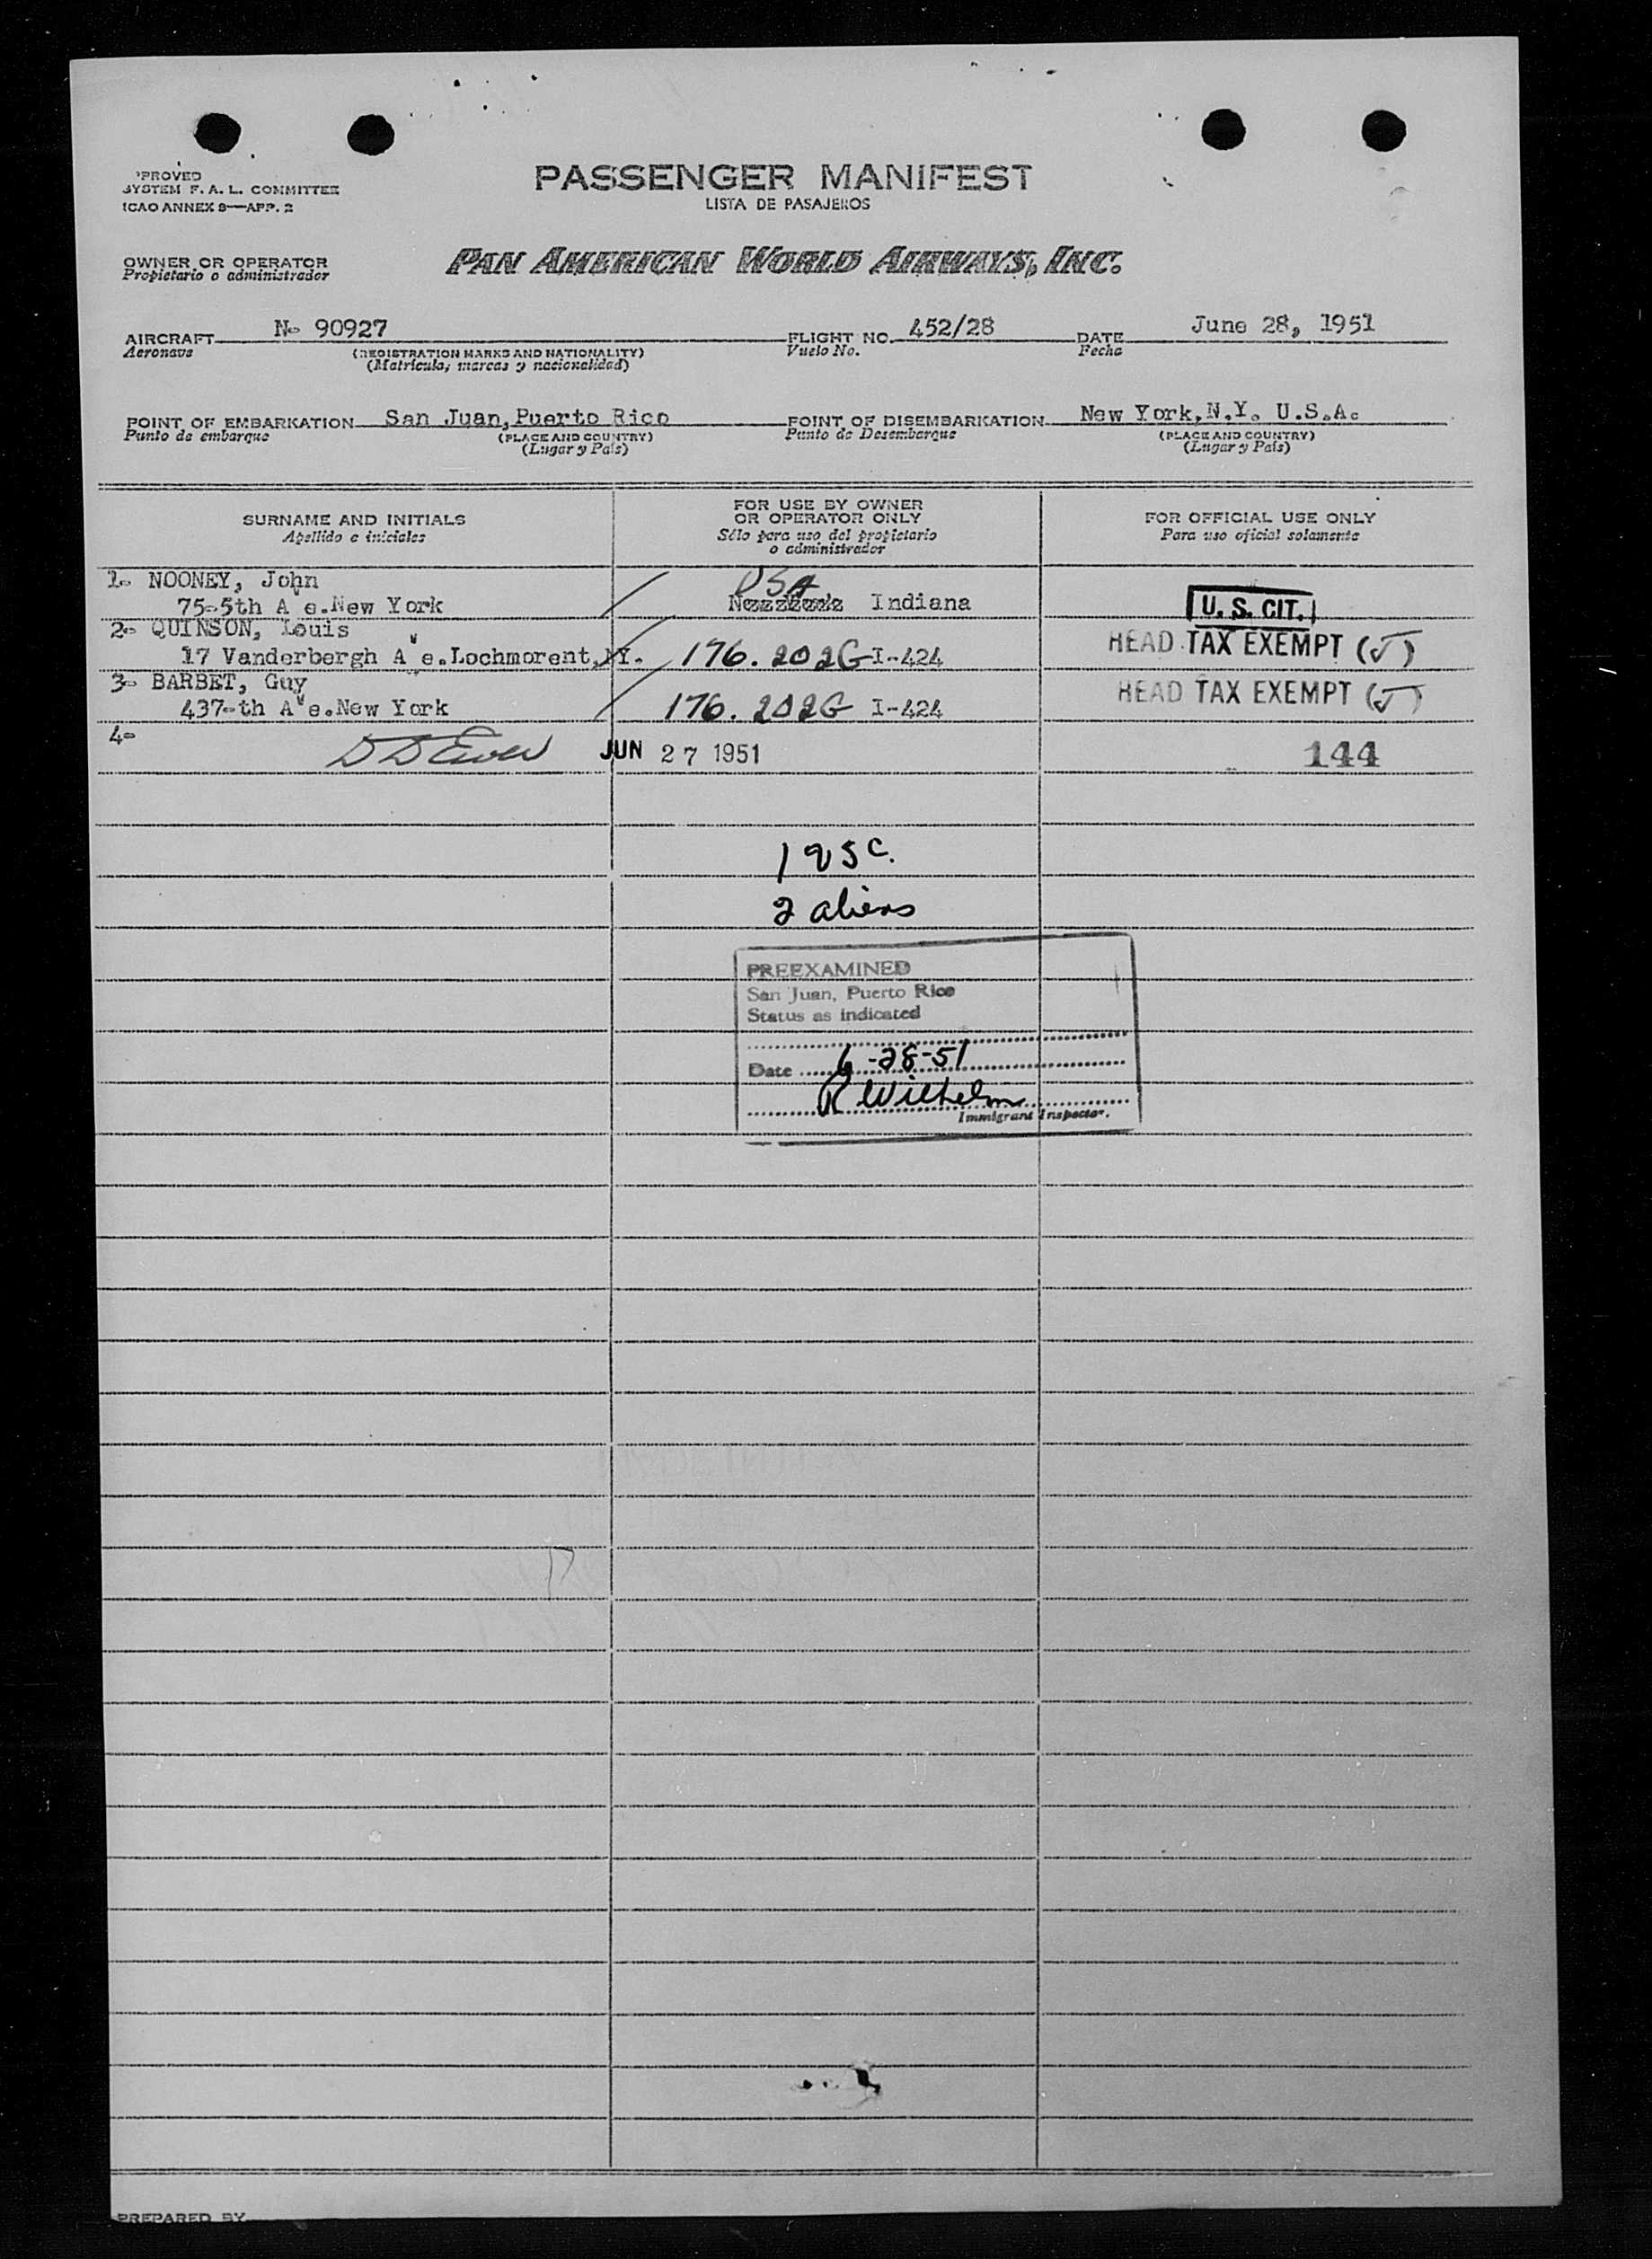 PROVED
SYSTEM F. A. L. COMMITTEE
ICAO ANNEX 9—APP. 2
PASSENGER MANIFEST
LISTA DE PASAJEROS
OWNER OR OPERATOR
Propietario o administrador
PAN AMERICAN WORLD AIRWAYS, INC.
AIRCRAFT N- 90927 FLIGHT NO. 452/28 DATE June 28, 1951
Aeronave (REGISTRATION MARKS AND NATIONALITY) Vuelo No. Fecha
(Matricula, marcas y nacionalidad)
POINT OF EMBARKATION San Juan, Puerto Rico POINT OF DISEMBARKATION New York, N.Y. U.S.A.
Punto de embarque (PLACE AND COUNTRY) Punto de Desembarque (PLACE AND COUNTRY)
(Lugar y País) (Lugar y País)
SURNAME AND INITIALS
Apellido e iniciales
FOR USE BY OWNER
OR OPERATOR ONLY
Sólo para uso del propietario
o administrador
FOR OFFICIAL USE ONLY
Para uso oficial solamente
1- NOONEY, John USA
75-5th A e.New York Indiana U. S. CIT.
2- QUINSON, Louis
17 Vanderbergh A v e.Lochmorent, 176.202G I-424 HEAD TAX EXEMPT (J)
3- BARBET, Guy
437-th A v e.New York 176.202G I-424 HEAD TAX EXEMPT (J)
4- JUN 27 1951 144
1 USC.
2 aliens
PREEXAMINED
San Juan, Puerto Rico
Status as indicated
Date 6-28-51
R Wilhelm
Immigrant Inspector.
PREPARED BY